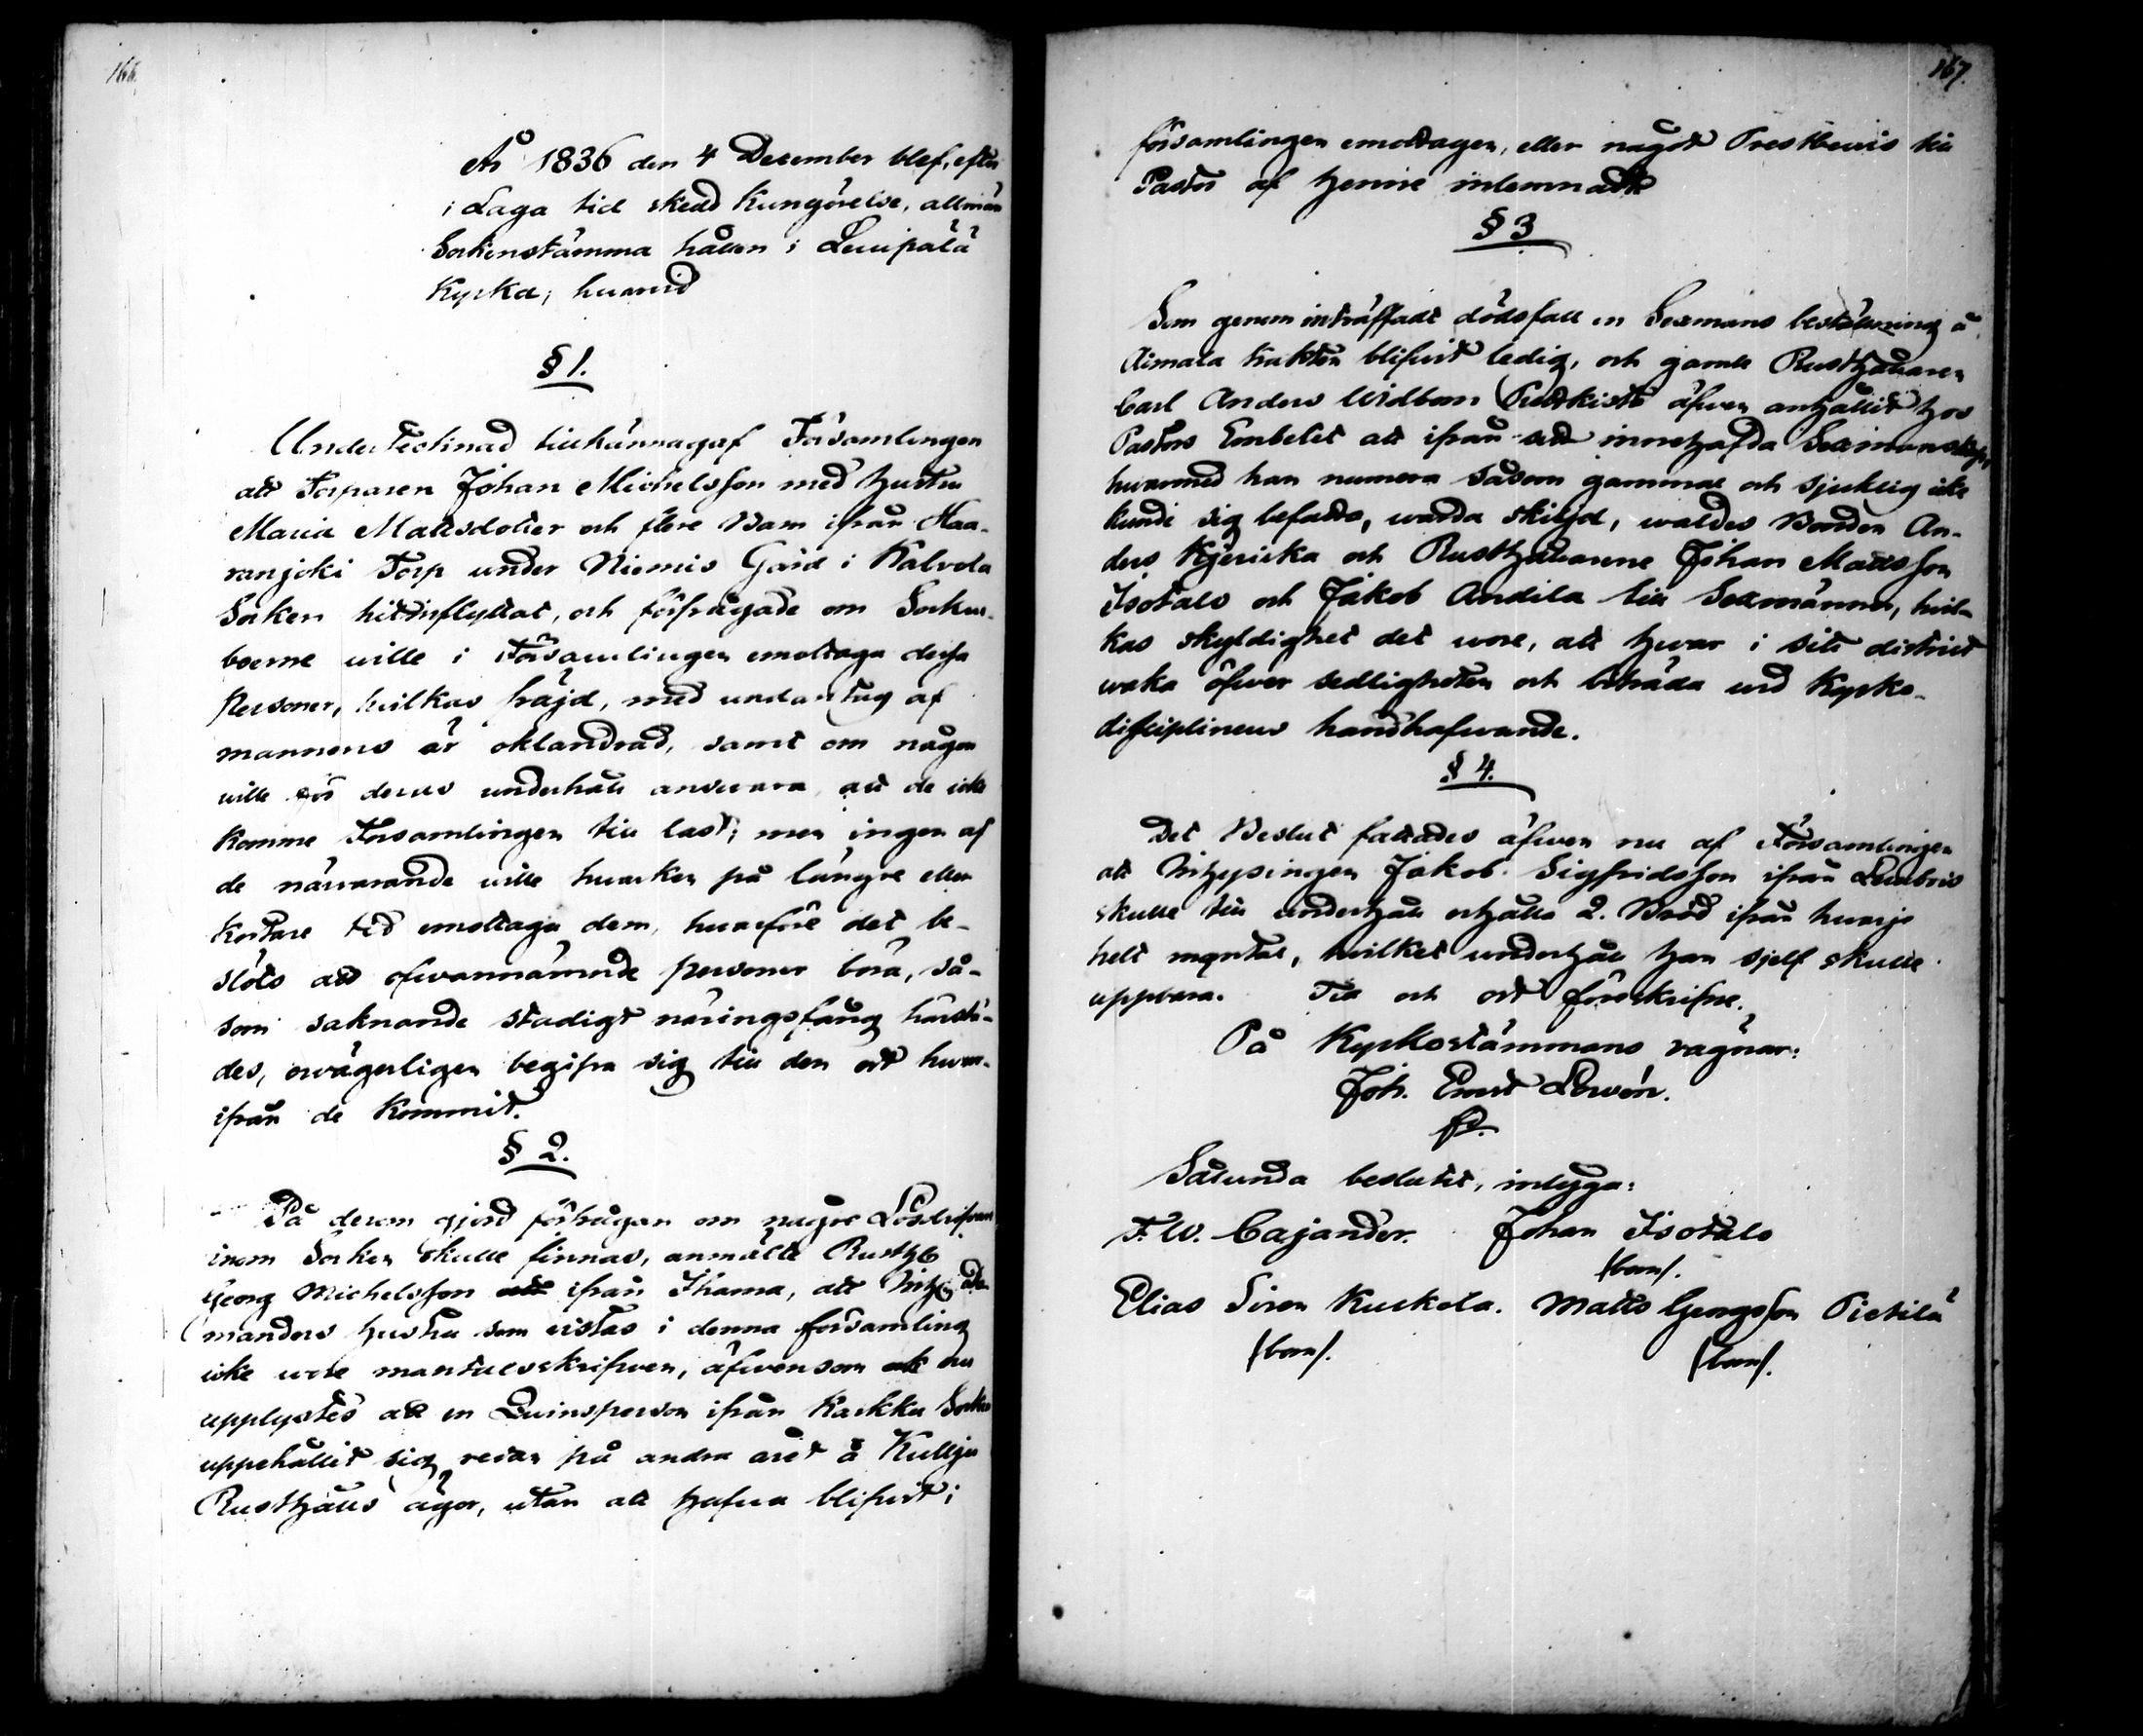 166.
År 1836 den 4 December blef, efter
i Laga tid skedd Kungörelse, allmän
Sockenstämma hållen i Lempälä
Kyrka; hwarwid
§ 1.
Undertecknad tillkännagaf Församlingen
att Torparen Johan Michelsson med hustru
Maria Mattsdotter och flere Barn ifrån Haa-
ranjoki Torp under Niemis Gård i Kalvola
Socken hitinflyttat, och förfrågade om Socken-
boerne wille i Församlingen emottaga dessa
Personer, hvilkas fräjd, med undantag af
mannens är oklandrad, samt om någon
wille för deras underhåll answara att de icke
komme Församlingen till last; men ingen af
de närwarande wille hwarken på längre eller
kortare tid emottaga dem, hwarföre det be-
slöts att ofwannämnde personer böra, så-
som saknande stadigt näringsfång härstä-
des, owägerligen begifva sig till den ort hwar-
ifrån de kommit.
§ 2.
På derom gjord förfrågan om någre Lösdrifvare
inom Socken skulle finnas, anmälte Rusth.
Georg Michelsson ifrån Ihama, att
manders hustru som vistas i denna församling
icke wore mantalsskrifven, äfvensom nu
upplystes att en Qwinsperson ifrån Karkku Socken
uppehållit sig redan på andra året å Kullja
Rusthålls ägor, utan att hafwa blifvit i
167.
församlingen emottagen, eller något Prestbevis till
Pastor af henne inlemnadt
§ 3
Som genom inträffadt dödsfall en Sexmans beställning å
Aimala trakten blifvit ledig, och gamle Rusthållaren
Carl Anders Widbom äfwen anhållit hos
Pastors Embetet att ifrån sitt innehafda Sexmanskap,
hwarmed han numera såsom gammal och sjuklig icke
kunde sig befatta, warda skiljd, waldes Bonden An-
ders Kjericka och Rusthållarene Johan Mattsson
Isotalo och Jakob Andila till Sexmänner, hvil-
kas skyldighet det wore, att hwar i sitt district
waka öfwer sedligheten och biträda wid Kyrko-
disciplinens handhafwande.
§ 4.
Det Beslut fattades äfwen nu af Församlingen
att Inhysingen Jakob Sigfridsson ifrån
skulle till underhåll erhålla 2. Bröd ifrån hwarje
helt mantal, hvilket underhåll han sjelf skulle
uppbära. Tid och ort förskrifne.
På Kyrkostämmans vägnar:
Joh. Ernst Lovén.
Sålunda beslutit, intyga:
F. W. Cajander. Johan Isotalo
(bom).
Elias Siren Kuckola. Matts Georgsson Pietilä
(bom). (bom).